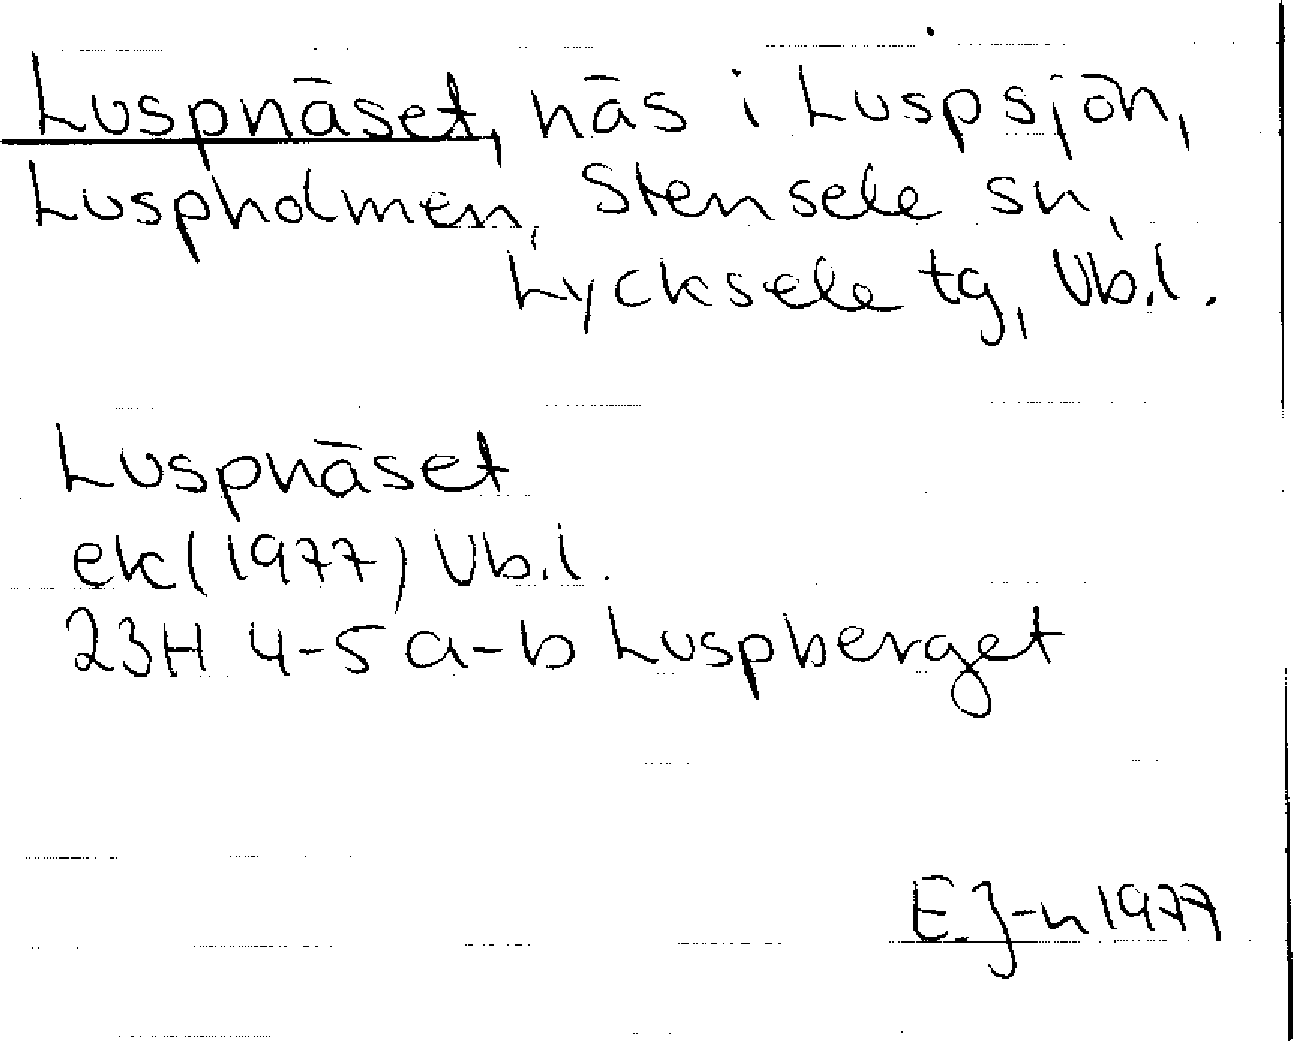 Luspnäset, näs i Luspsjön,
Luspholmen, Stensele sn,
Lycksele tg, Vb.l.
Luspnäset
ek(1977) Vb.l.
23H 4-5 a-b Luspberget
E.J-n 1977